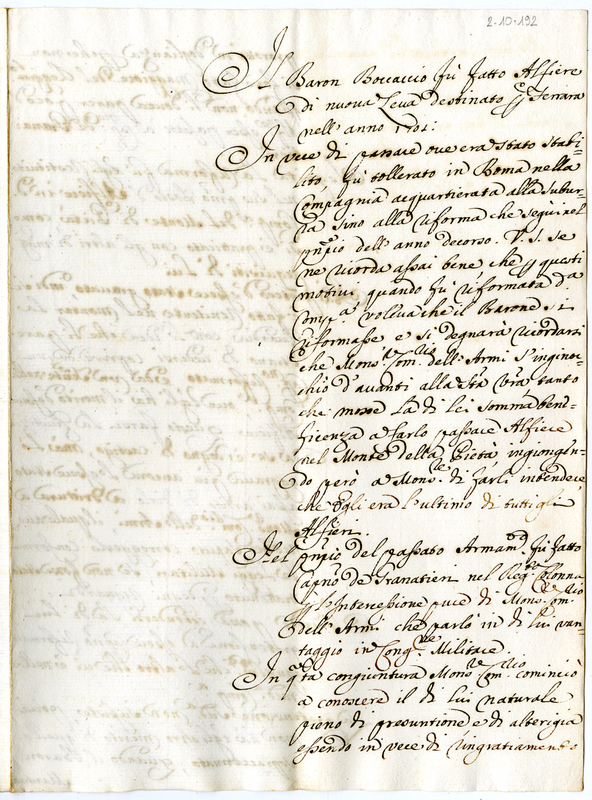 2-10-192
Il Baron Boccaccio fù fatto Alfiere
di nuova Leva destinato p Ferrara
nell' anno 1701:
In vece di passare ove era stato stabi-
lito, fù tollerato in Roma nella
Compagnia acquartierata alla subur-
ra sino alla riforma che seguì nel
pñpio dell' anno decorso. V. S. se
ne ricorda assai bene, che p questi
motivi, quando fù riformata d.a
Comp.a, voleva che il Barone si
riformasse e si degnarà ricordarsi
che Mons.r Com.rio dell' Armi s'inginoc-
chiò d'avanti alla Stà Vrã tanto
che mosse la di lei somma bene-
ficenza a farlo passare Alfiere
nel Monte della Pietà, ingiongen-
do però a Mons.re di farli intendere,
che Egli era l'ultimo di tutti gli
Alfieri.
Nel pñpio del passato Armam.to fù fatto
Capño de Granatieri nel Reg.to Colonna
p l'Intercessione pure di Mons.r Com.rio
dell' Armi che parlò in di lui van-
taggio in Cong.ne Militare.
In q̃ta congiuntura Mons.r Com.rio cominciò
a conoscere il di lui naturale
pieno di presuntione e di alterigia
essendo in vece di ringratiamento